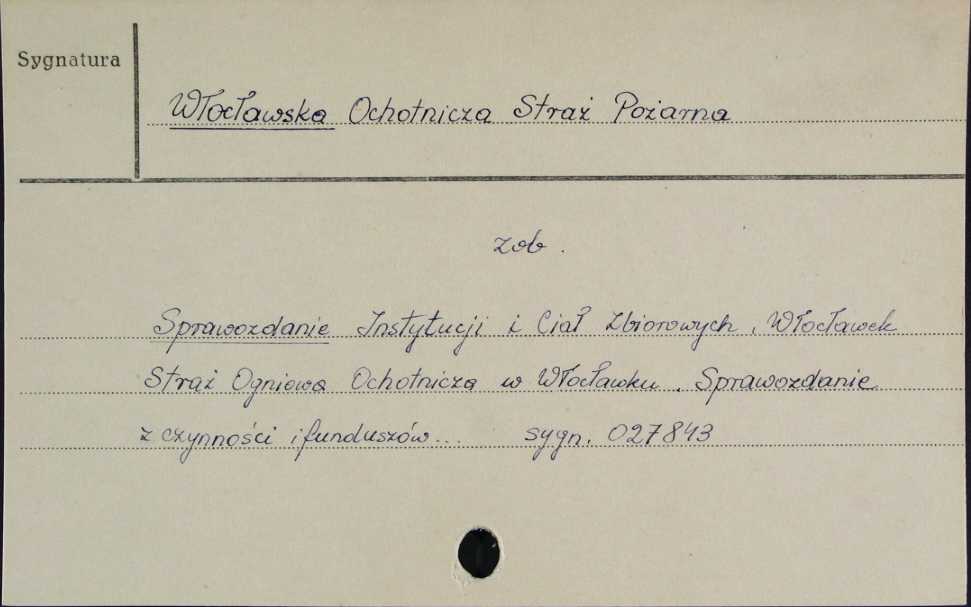 Sygnatura
Włocławska Ochotnicza Straż Pożarna
zob.
Sprawozdanie Instytucji i Ciał Zbiorowych, Włocławek
Straż Ogniowa Ochotnicza w Włocławku. Sprawozdanie
z czynności i funduszów... sygn. 027843